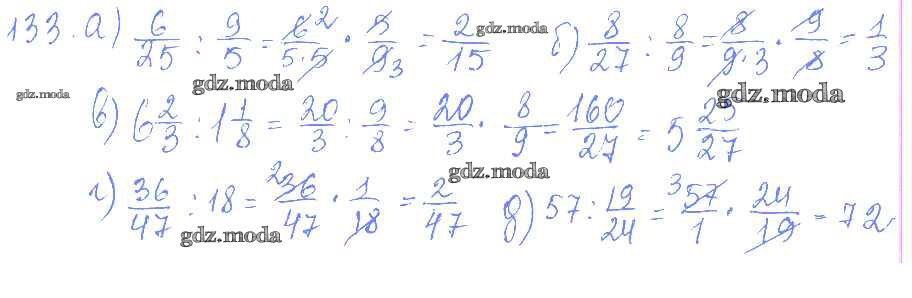 133. а) 6/25 : 9/5 = 6 2/5·5 · 5/9 3 = 2/15 б) 8/27 : 8/9 = 8/9·3 · 9/8 = 1/3
gdz.moda
gdz.moda
gdz.moda
gdz.moda
в) 6 2/3 : 1 1/8 = 20/3 : 9/8 = 20/3 · 8/9 = 160/27 = 5 25/27
gdz.moda
г) 36/47 : 18 = 2 36/47 · 1/18 = 2/47 д) 57 : 19/24 = 3 57/1 · 24/19 = 72.
gdz.moda